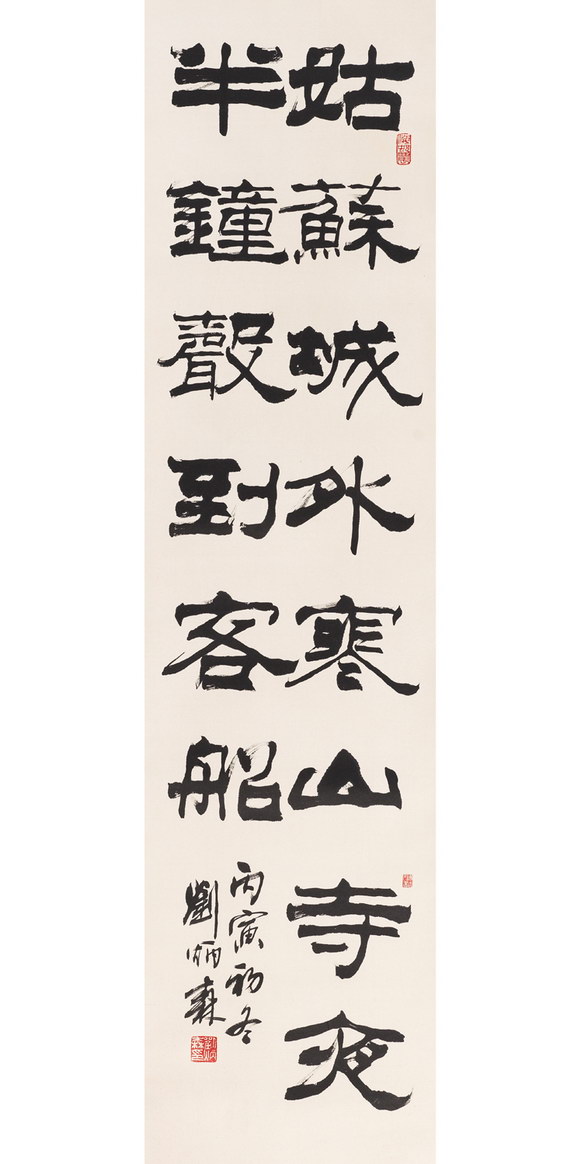 姑蘇城外寒山寺夜
半鐘聲到客船
丙寅初冬
劉炳森